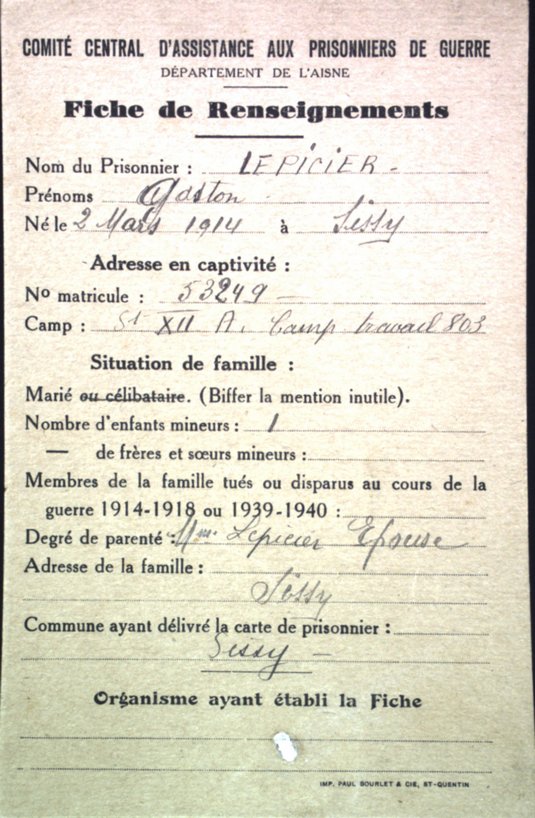 COMITÉ CENTRAL D'ASSISTANCE AUX PRISONNIERS DE GUERRE
DÉPARTEMENT DE L'AISNE
Fiche de Renseignements
Nom du Prisonnier : LEPICIER -
Prénoms Gaston
Né le 2 Mars 1914 à Sissy
Adresse en captivité :
No matricule : 53249 -
Camp : St XII A. Camp travail 803
Situation de famille :
Marié ou célibataire. (Biffer la mention inutile).
Nombre d'enfants mineurs : 1
— de frères et sœurs mineurs :
Membres de la famille tués ou disparus au cours de la
guerre 1914-1918 ou 1939-1940 :
Degré de parenté : Mme Lepicier Epouse
Adresse de la famille :
Sissy
Commune ayant délivré la carte de prisonnier :
Sissy -
Organisme ayant établi la Fiche
IMP. PAUL BOURLET & CIE, ST-QUENTIN